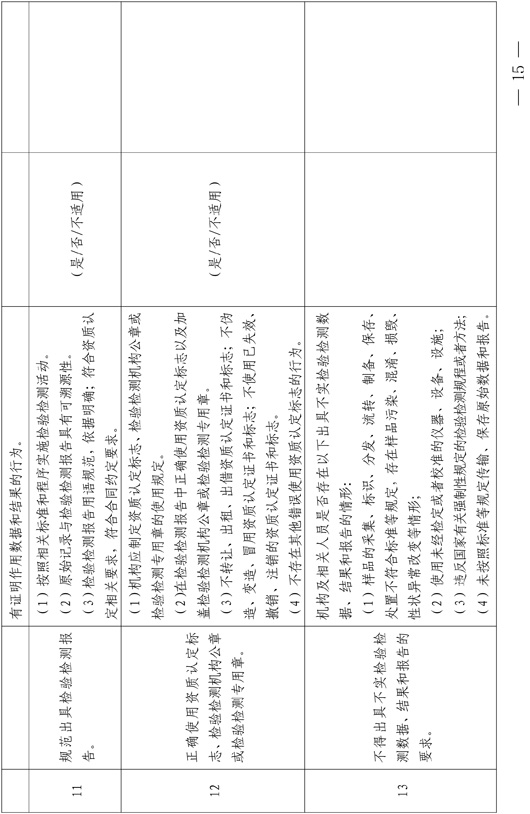 有证明作用数据和结果的行为。
11
规范出具检验检测报
告。
（1）按照相关标准和程序实施检验检测活动。
（2）原始记录与检验检测报告具有可溯源性。
（3）检验检测报告用语规范，依据明确；符合资质认
定相关要求、符合合同约定要求。
（是/否/不适用）
12
正确使用资质认定标
志、检验检测机构公章
或检验检测专用章。
（1）机构应制定资质认定标志、检验检测机构公章或
检验检测专用章的使用规定。
（2）在检验检测报告中正确使用资质认定标志以及加
盖检验检测机构公章或检验检测专用章。
（3）不转让、出租、出借资质认定证书和标志；不伪
造、变造、冒用资质认定证书和标志；不使用已失效、
撤销、注销的资质认定证书和标志。
（4）不存在其他错误使用资质认定标志的行为。
（是/否/不适用）
13
不得出具不实检验检
测数据、结果和报告的
要求。
机构及相关人员是否存在以下出具不实检验检测数
据、结果和报告的情形：
（1）样品的采集、标识、分发、流转、制备、保存、
处置不符合标准等规定，存在样品污染、混淆、损毁、
性状异常改变等情形；
（2）使用未经检定或者校准的仪器、设备、设施；
（3）违反国家有关强制性规定的检验检测规程或者方法；
（4）未按照标准等规定传输、保存原始数据和报告。
— 15 —